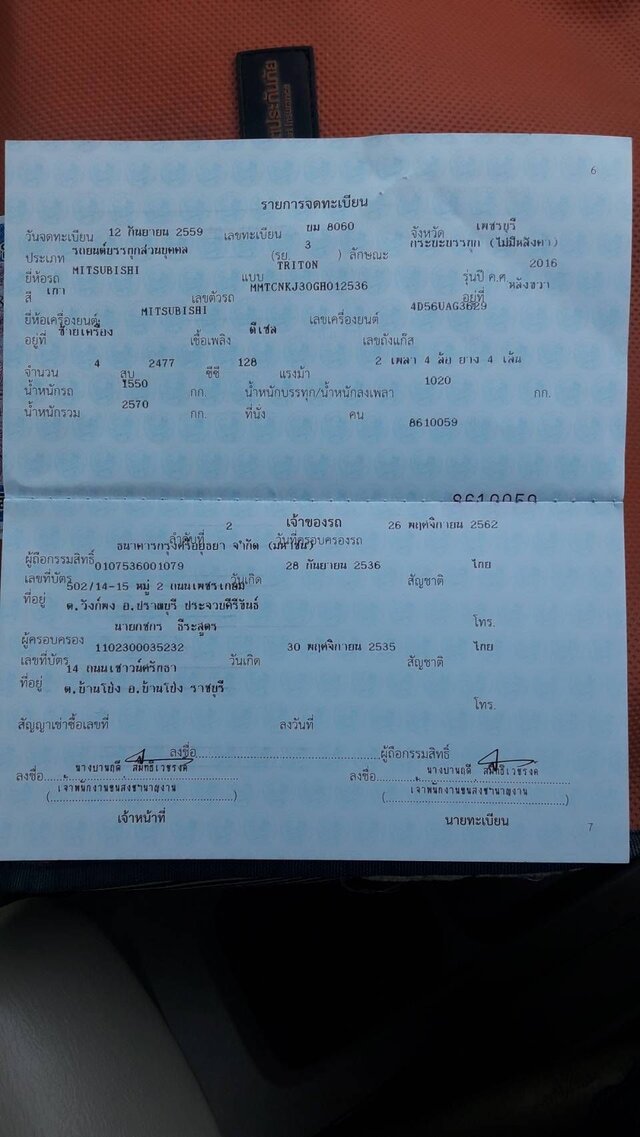 ประกันภัย
Insurance
6
รายการจดทะเบียน
วันจดทะเบียน 12 กันยายน 2559 เลขทะเบียน ขม 8060 จังหวัด เพชรบุรี
ประเภท รถยนต์บรรทุกส่วนบุคคล (รย. 3 ) ลักษณะ กระบะบรรทุก (ไม่มีหลังคา)
ยี่ห้อรถ MITSUBISHI แบบ TRITON รุ่นปี ค.ศ. 2016
สี เทา เลขตัวรถ MMTCNKJ30GH012536 อยู่ที่ หลังขวา
ยี่ห้อเครื่องยนต์ MITSUBISHI เลขเครื่องยนต์ 4D56UAG3629
อยู่ที่ ซ้ายเครื่อง เชื้อเพลิง ดีเซล เลขถังแก๊ส
จำนวน 4 สูบ 2477 ซีซี 128 แรงม้า 2 เพลา 4 ล้อ ยาง 4 เส้น
น้ำหนักรถ 1550 กก. น้ำหนักบรรทุก/น้ำหนักลงเพลา 1020 กก.
น้ำหนักรวม 2570 กก. ที่นั่ง คน
8610059
8610059
เจ้าของรถ
ลำดับที่ 2 วันที่ครอบครองรถ 26 พฤศจิกายน 2562
ผู้ถือกรรมสิทธิ์ ธนาคารกรุงศรีอยุธยา จำกัด (มหาชน)
เลขที่บัตร 0107536001079 วันเกิด 28 กันยายน 2536 สัญชาติ ไทย
ที่อยู่ 502/14-15 หมู่ 2 ถนนเพชรเกษม
ต.วังก์พง อ.ปราณบุรี ประจวบคีรีขันธ์
โทร.
ผู้ครอบครอง นายกชกร ธีระสูตร
เลขที่บัตร 1102300035232 วันเกิด 30 พฤศจิกายน 2535 สัญชาติ ไทย
ที่อยู่ 14 ถนนเชาวน์ศรัทธา
ต.บ้านโป่ง อ.บ้านโป่ง ราชบุรี
โทร.
สัญญาเช่าซื้อเลขที่ ลงวันที่
ลงชื่อ ผู้ถือกรรมสิทธิ์
ลงชื่อ ลงชื่อ
เจ้าพนักงานขนส่งชำนาญงาน เจ้าพนักงานขนส่งชำนาญงาน
เจ้าหน้าที่ นายทะเบียน
7